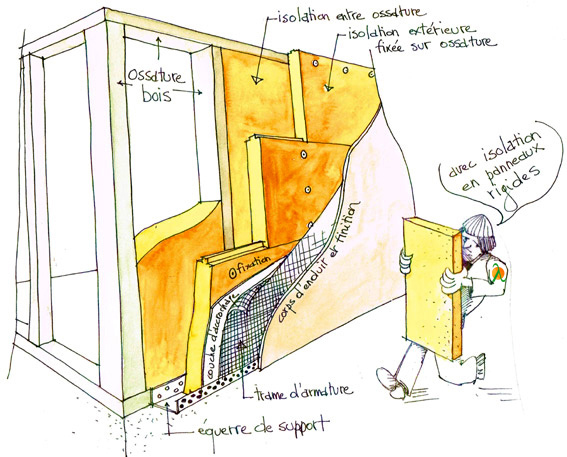 isolation entre ossature
isolation extérieure
fixée sur ossature
ossature
bois
avec isolation
en panneaux
rigides
fixation
couche d'accrochage
corps d'enduit et finition
trame d'armature
équerre de support